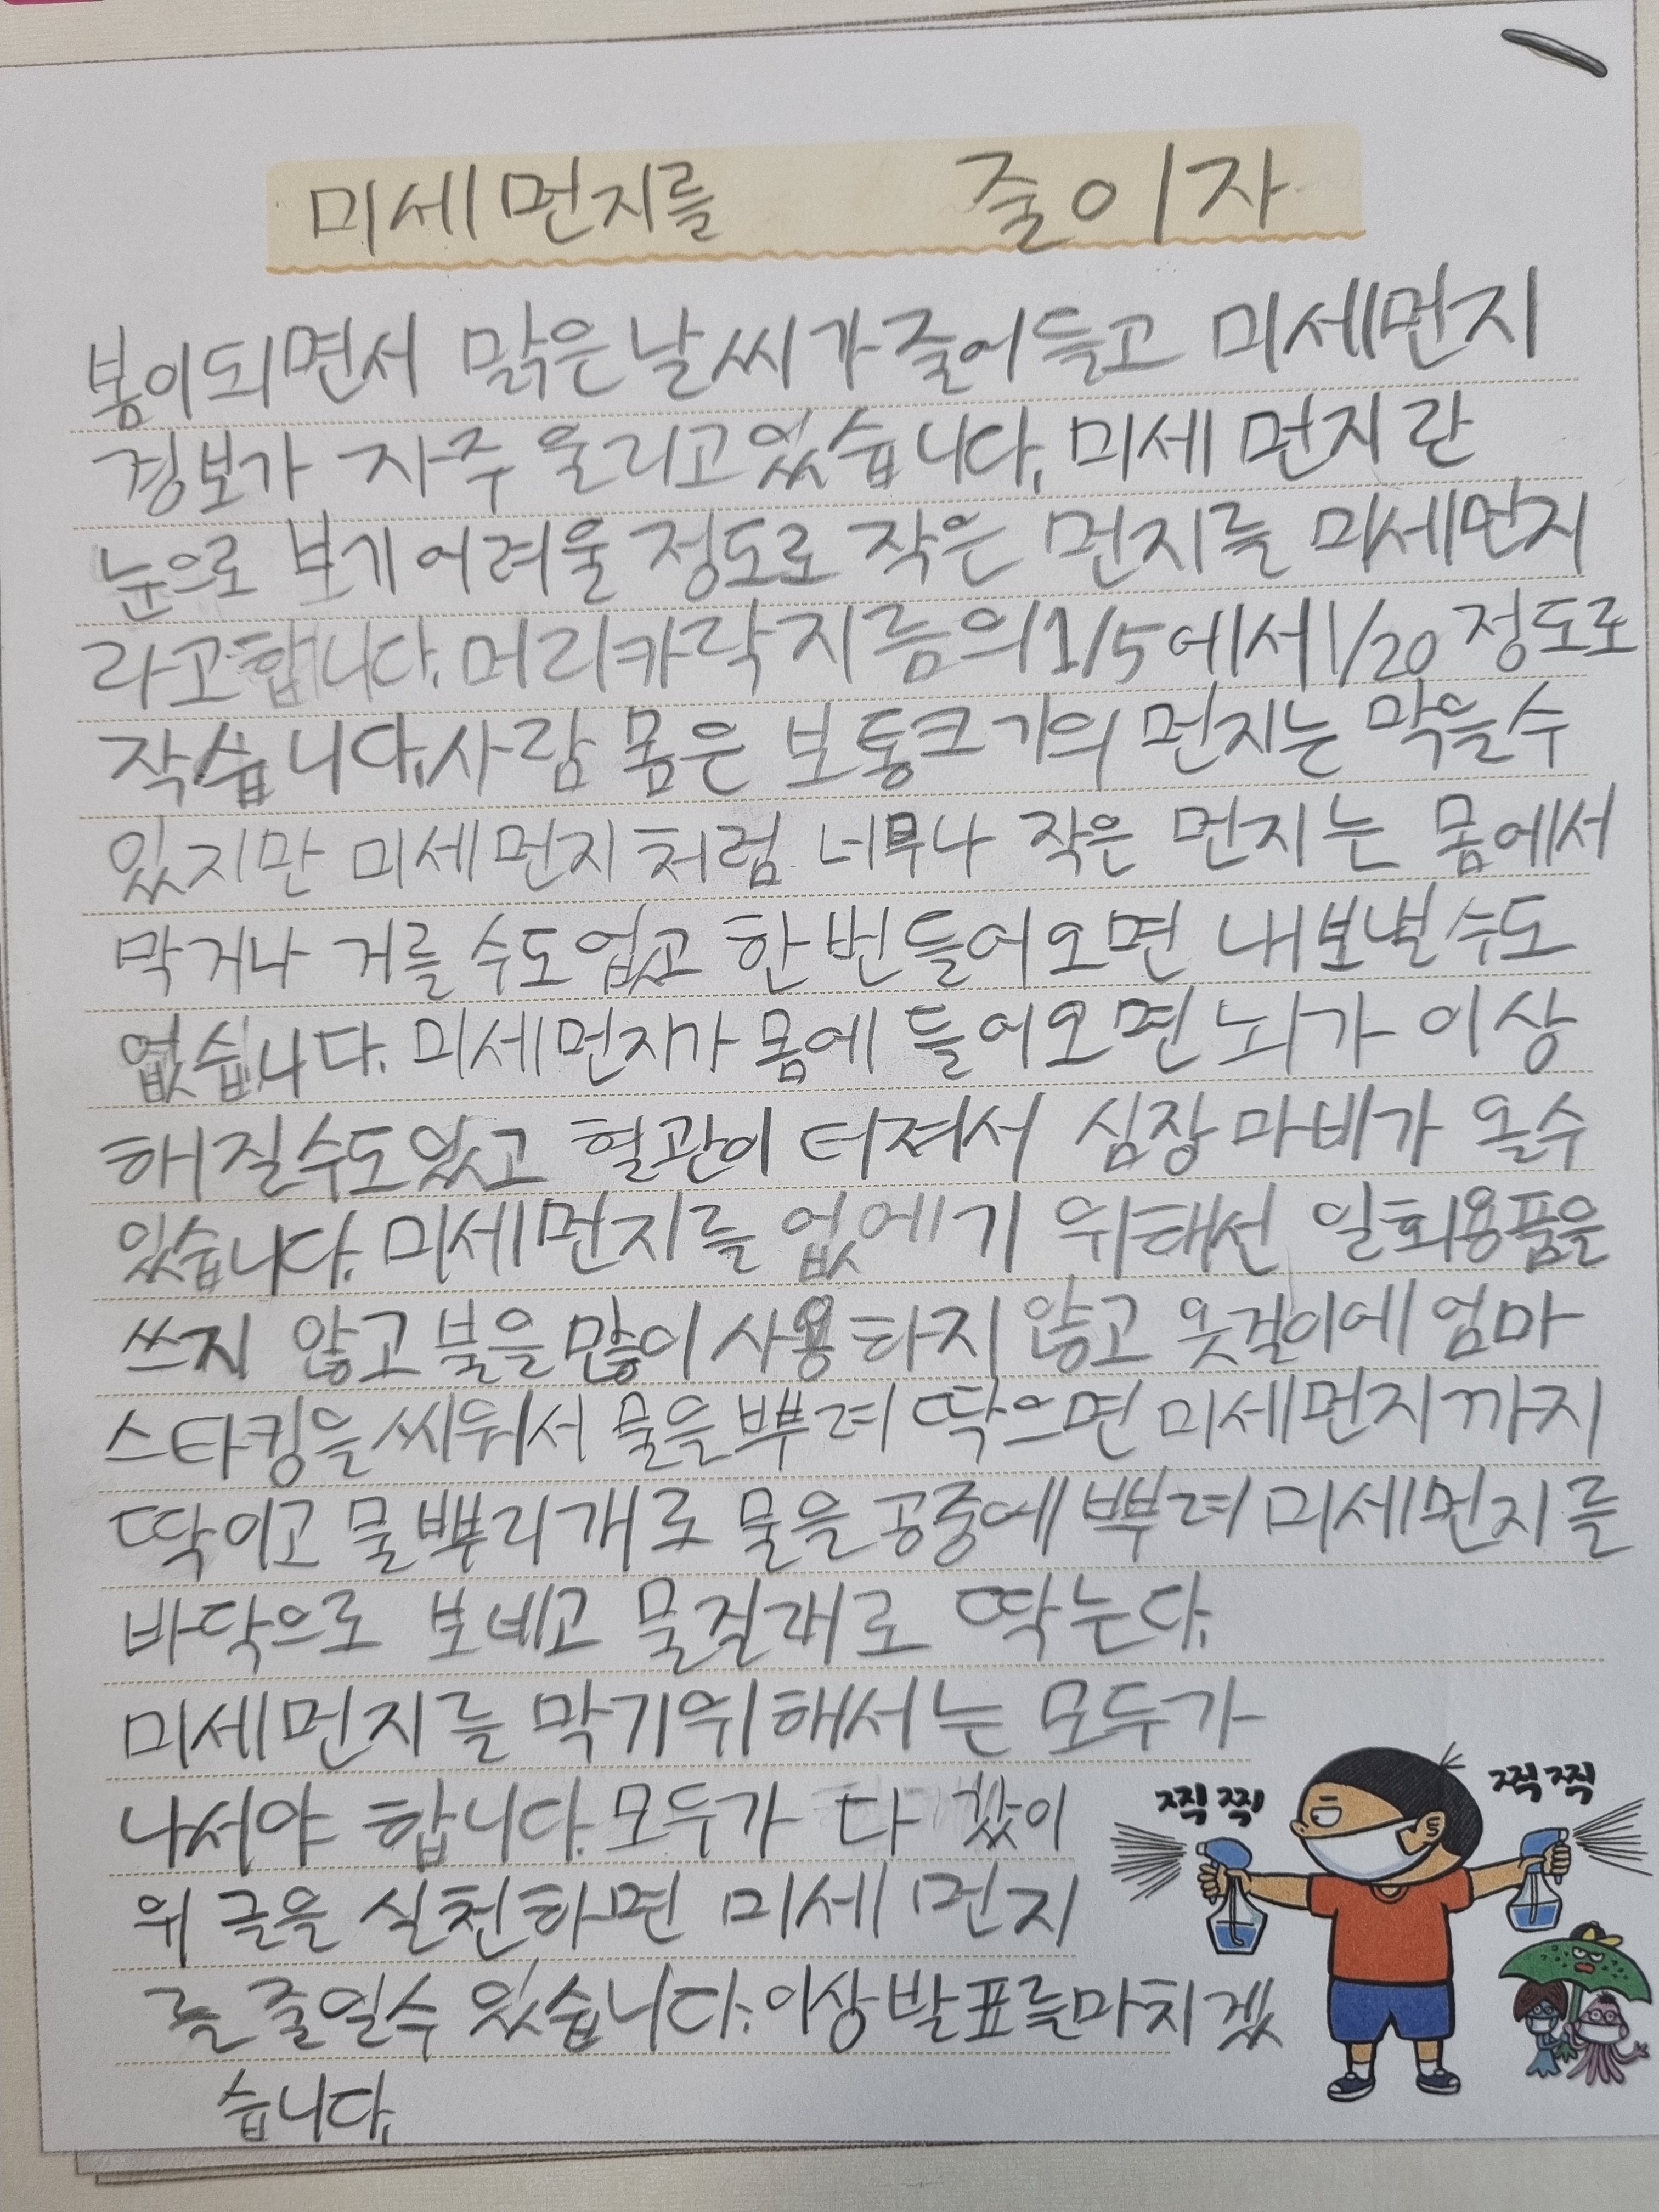 미세먼지를 줄이자
봄이되면서 맑은날씨가줄어들고 미세먼지
경보가 자주 울리고있습니다. 미세먼지란
눈으로 보기어려울 정도로 작은 먼지를 미세먼지
라고합니다. 머리카락지름의1/5에서1/20 정도로
작습니다. 사람 몸은 보통크기의 먼지는 막을수
있지만 미세먼지처럼 너무나 작은 먼지는 몸에서
막거나 거를 수도없고 한번들어오면 내보낼수도
없습니다. 미세먼지가 몸에 들어오면뇌가 이상
해질수도있고 혈관이 터져서 심장마비가 올수
있습니다. 미세먼지를 없에기 위해선 일회용품을
쓰지 않고불을많이사용하지않고 옷걸이에엄마
스타킹을씌워서 물을뿌려 딱으면미세먼지까지
딱이고 물뿌리개로 물을공중에뿌려미세먼지를
바닥으로 보네고 물걸래로 딱는다.
미세먼지를 막기위해서는 모두가
나서야 합니다. 모두가 다 갔이
위 글을 실천하면 미세먼지
를 줄일수 있습니다. 이상발표를마치겠
습니다.
찍찍
찍찍